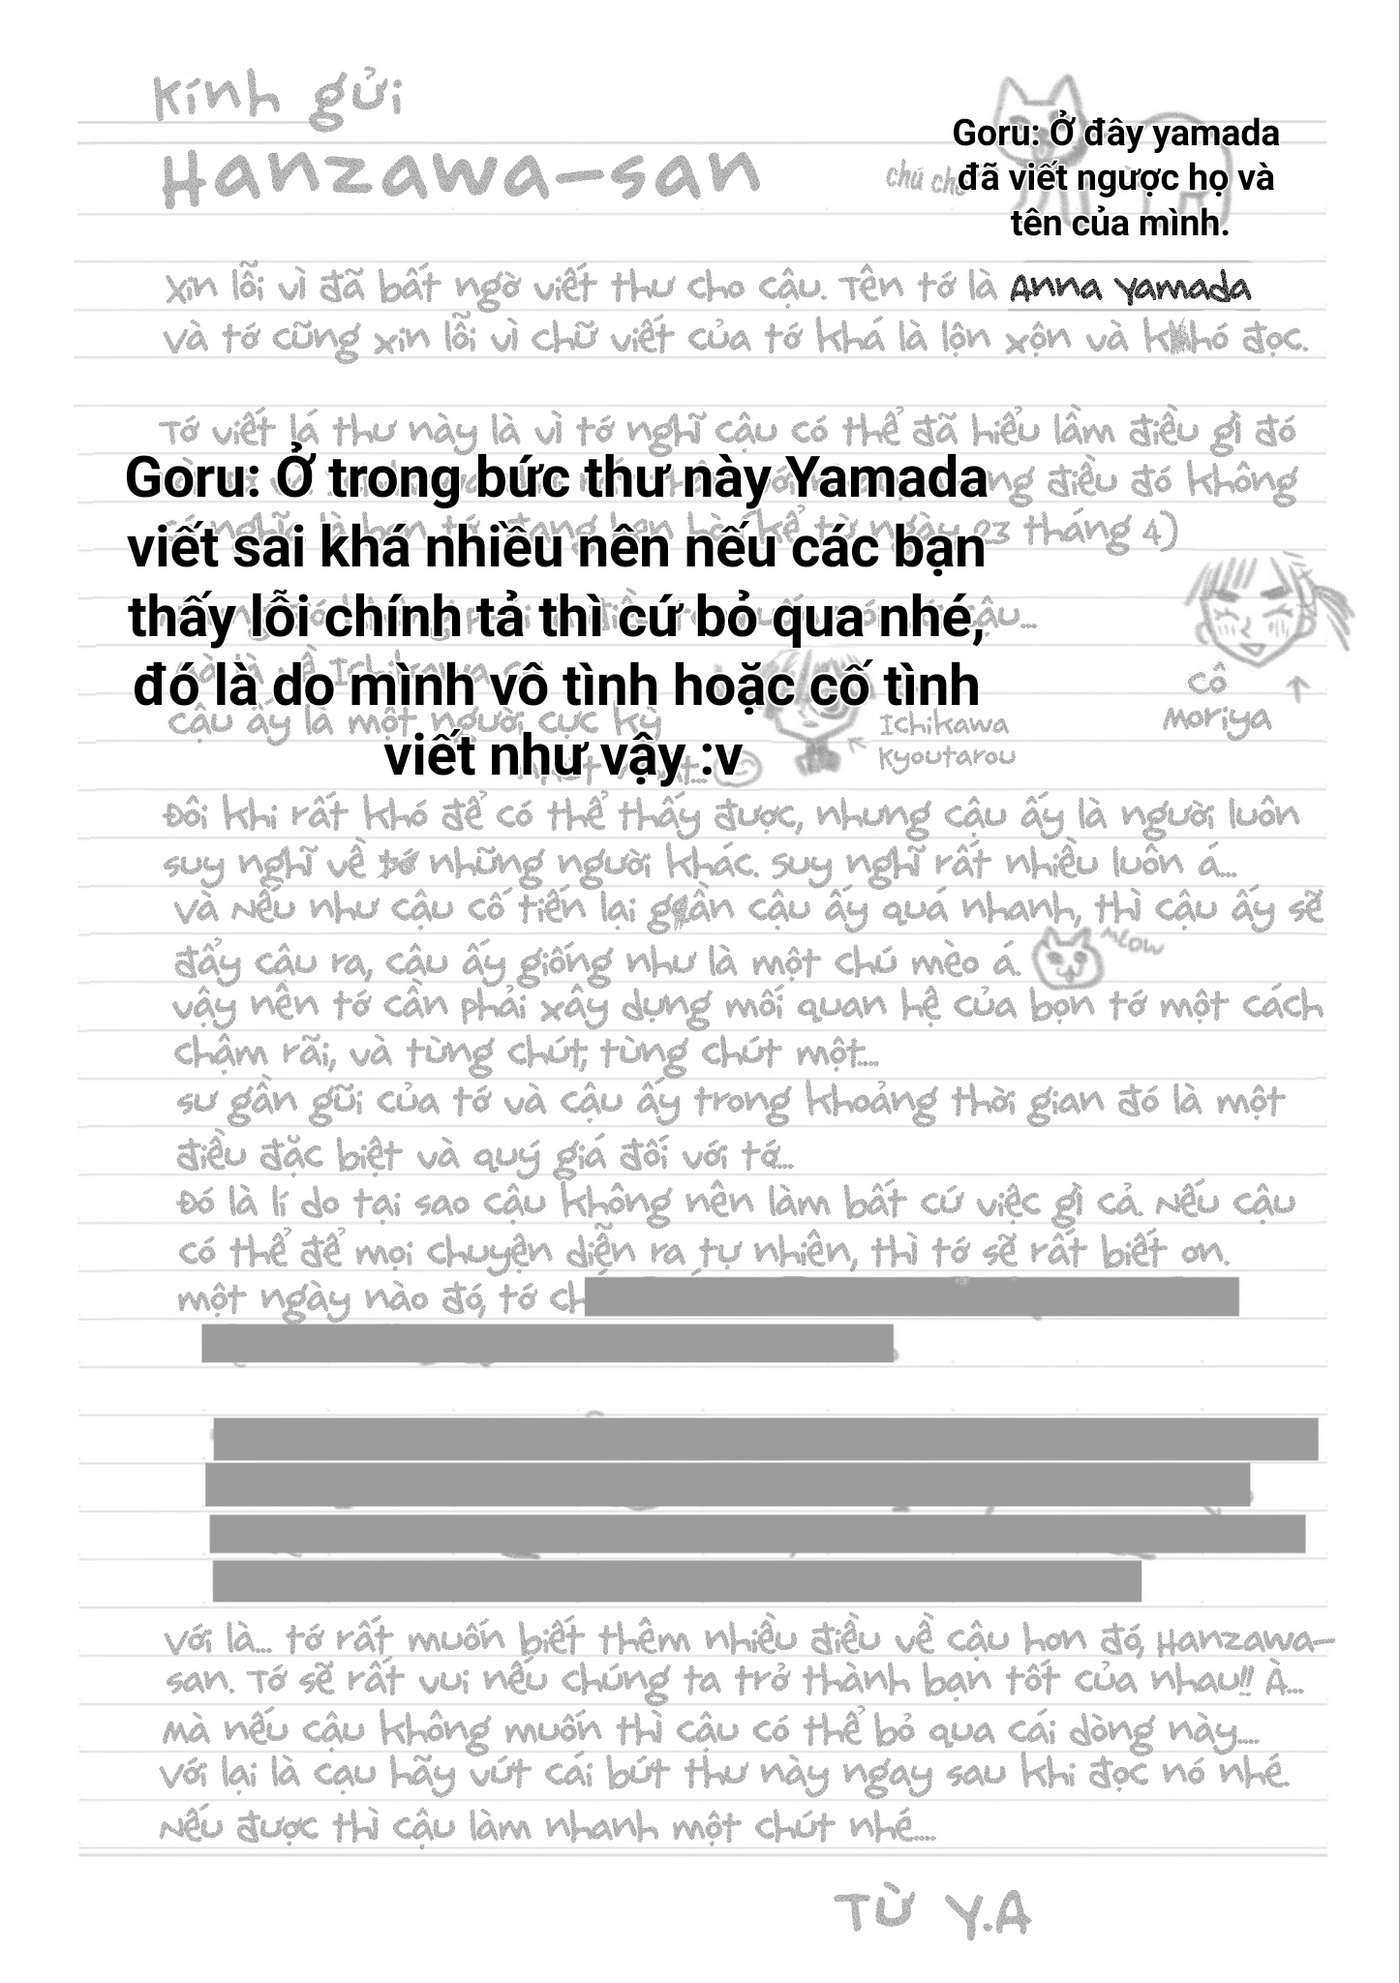 Kính gửi
Hanzawa-san
chú
Goru: Ở đây yamada
đã viết ngược họ và
tên của mình.
Xin lỗi vì đã bất ngờ viết thư cho cậu. Tên tớ là Anna Yamada
và tớ cũng xin lỗi vì chữ viết của tớ khá là lộn xộn và k hó đọc.
Tớ viết lá thư này là vì tớ nghĩ cậu có thể đã hiểu lầm điều gì đó
Goru: Ở trong bức thư này Yamada
viết sai khá nhiều nên nếu các bạn
thấy lỗi chính tả thì cứ bỏ qua nhé,
đó là do mình vô tình hoặc cố tình
viết như vậy :v
điều đó không
kể từ ngày 03 tháng 4)
cậu...
cậu ấy là một người cực kỳ
Ichikawa
Kyoutarou
cô
Moriya
Đôi khi rất khó để có thể thấy được, nhưng cậu ấy là người luôn
suy nghĩ về tớ những người khác. Suy nghĩ rất nhiều luôn á...
và Nếu như cậu cố tiến lại g ần cậu ấy quá nhanh, thì cậu ấy sẽ
đẩy câu ra, cậu ấy giống như là một chú mèo á.
meow
vậy nên tớ cần phải xây dựng mối quan hệ của bọn tớ một cách
chậm rãi, và từng chút, từng chút một...
sư gần gũi của tớ và cậu ấy trong khoảng thời gian đó là một
điều đặc biệt và quý giá đối với tớ...
Đó là lí do tại sao cậu không nên làm bất cứ việc gì cả. Nếu cậu
có thể để mọi chuyện diễn ra tự nhiên, thì tớ sẽ rất biết ơn.
một ngày nào đó, tớ
Với là... tớ rất muốn biết thêm nhiều điều về cậu hơn đó, Hanzawa-
san. Tớ sẽ rất vui nếu chúng ta trở thành bạn tốt của nhau!! À...
mà nếu cậu không muốn thì cậu có thể bỏ qua cái dòng này....
Với lại là cạu hãy vứt cái bút thư này ngay sau khi đọc nó nhé.
Nếu được thì cậu làm nhanh một chút nhé....
Từ Y.A